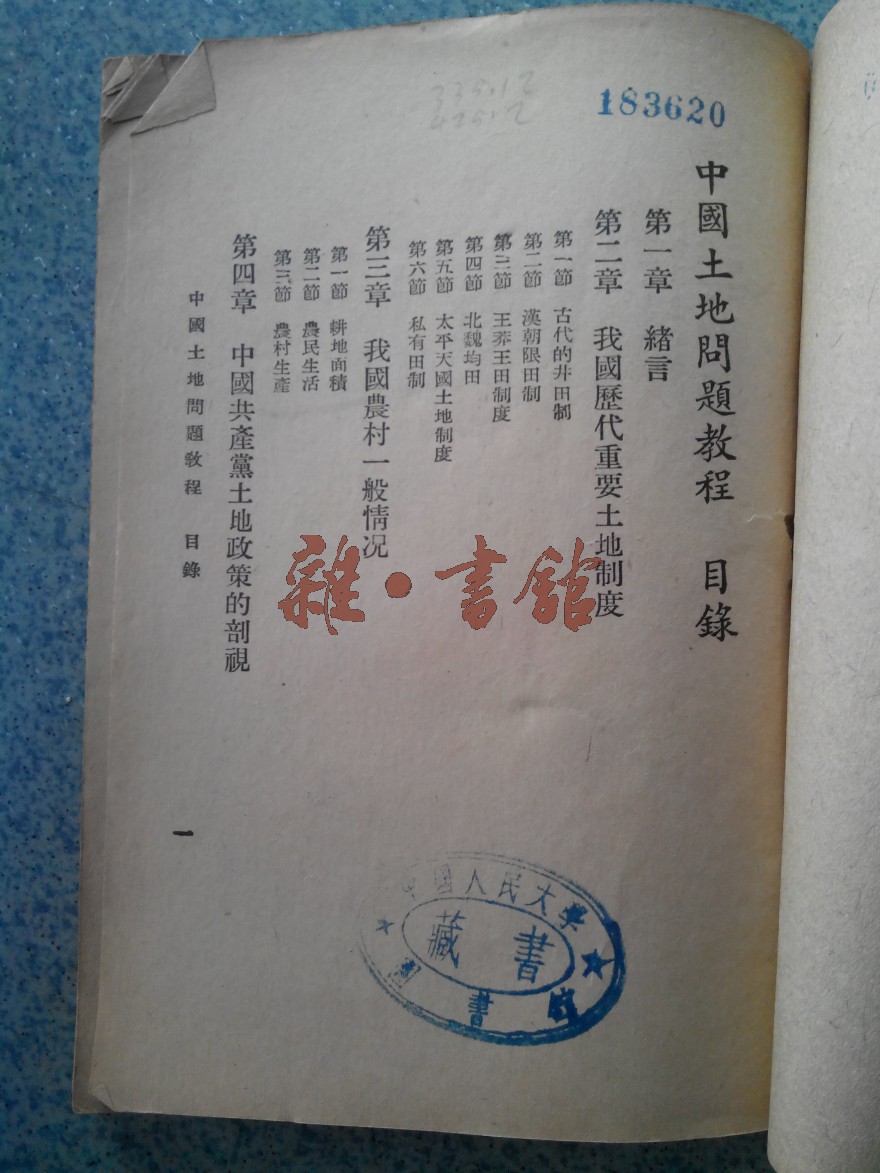 183620
335.12
中國土地問題教程　目錄
第一章　緒言
第二章　我國歷代重要土地制度
第一節　古代的井田制
第二節　漢朝限田制
第三節　王莽王田制度
第四節　北魏均田
第五節　太平天國土地制度
第六節　私有田制
第三章　我國農村一般情况
第一節　耕地面積
第二節　農民生活
第三節　農村生產
第四章　中國共產黨土地政策的剖視
中國土地問題教程　目錄
一
雜·書館
中國人民大學
藏書
圖書館